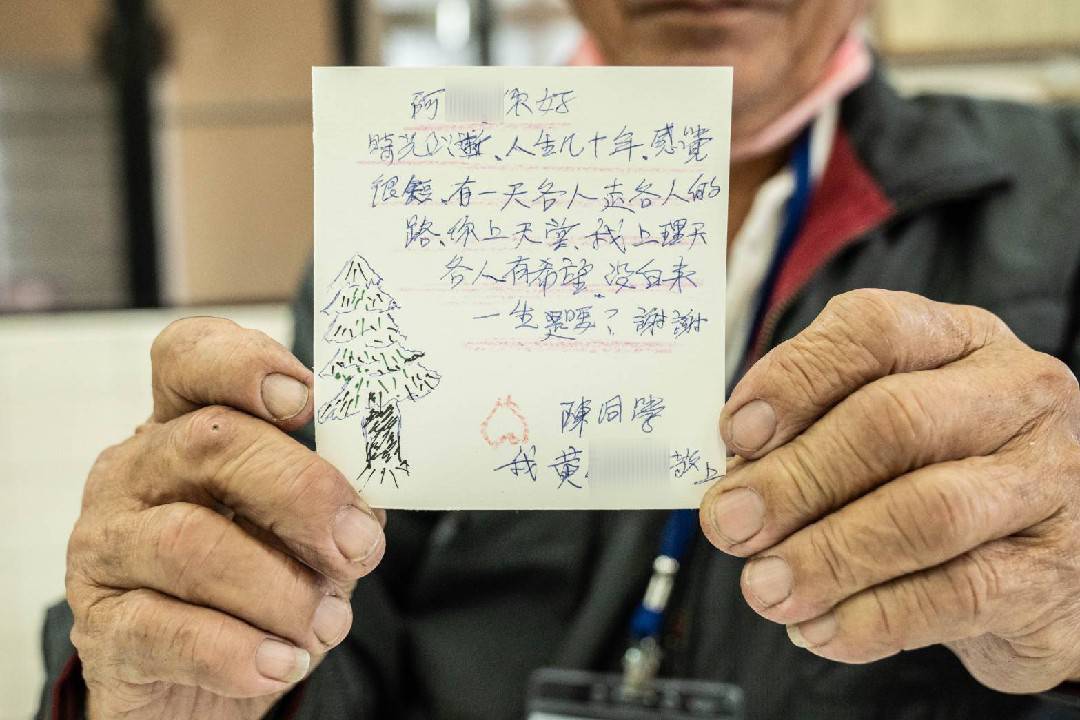 阿 你好
時光似箭、人生几十年、感覺
很短、有一天各人走各人的
路、你上天堂、我上理天
各人有希望、沒白來
一生是嗎？謝謝
陳同學
我黃 敬上